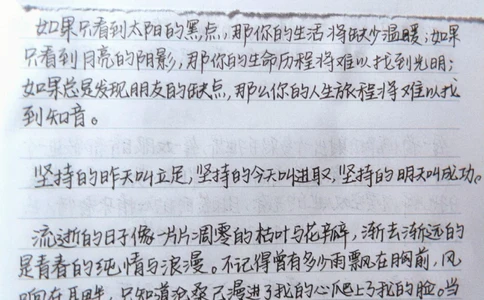 如果只看到太阳的黑点,那你的生活将缺少温暖;如果
只看到月亮的阴影,那你的生命历程将难以找到光明;
如果总是发现朋友的缺点,那么你的人生旅程将难以找
到知音。
坚持的昨天叫立足,坚持的今天叫进取,坚持的明天叫成功。
流逝的日子像一片片凋零的枯叶与花瓣,渐去渐远的
是青春的纯情与浪漫。不记得曾有多少雨飘在胸前,风
响在耳畔,只知道沧桑已漫进了我的心爬上了我的脸。当